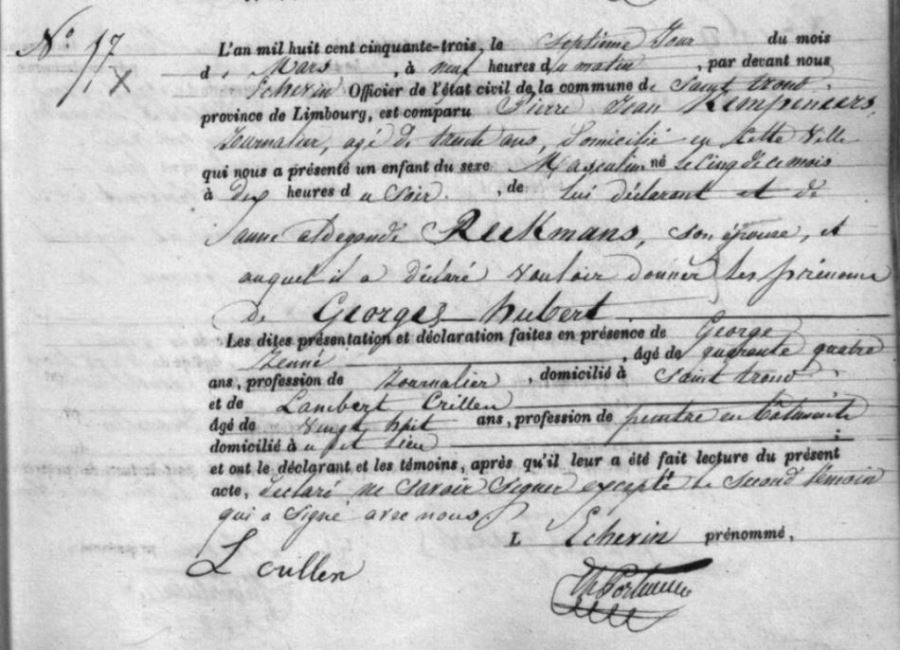 N° 17
L'an mil huit cent cinquante-trois, le septième Jour du mois
d. Mars, à neuf heures du matin, par devant nous
Echevin Officier de l'état civil de la commune de Saint trond.
province de Limbourg, est comparu Pierre Jean Kempeneers,
Journalier, agé de trente ans, domicilié en cette Ville
qui nous a présenté un enfant du sexe Masculin né le cinq de ce mois
à dix heures du Soir, de lui déclarant et de
Jeanne aldegonde Reekmans, son épouse, et
auquel il a déclaré vouloir donner les prénoms
de Georges hubert
Les dites présentation et déclaration faites en présence de George
, âgé de quarante quatre
ans, profession de Journalier, domicilié à Saint trond.
et de Lambert Crillen
âgé de Vingt huit ans, profession de peintre en batiments
domicilié à u dit lieu ;
et ont le déclarant et les témoins, après qu'il leur a été fait lecture du présent
acte, déclaré ne savoir signer excepté le second témoin
qui a signé avec nous
L Echevin prénommé,
L Crillen